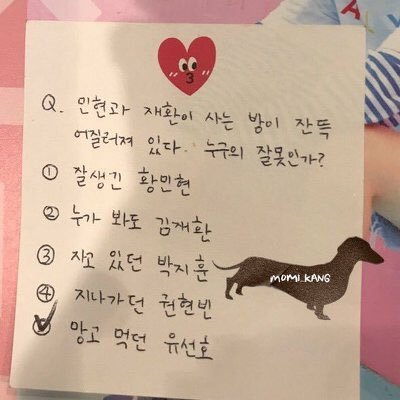 3
Q. 민현과 재환이 사는 방이 잔뜩
어질러져 있다. 누구의 잘못인가?
① 잘생긴 황민현
② 누가 봐도 김재환
③ 자고 있던 박지훈
④ 지나가던 권현빈
⑤ 망고 먹던 유선호
MOMI_KANG